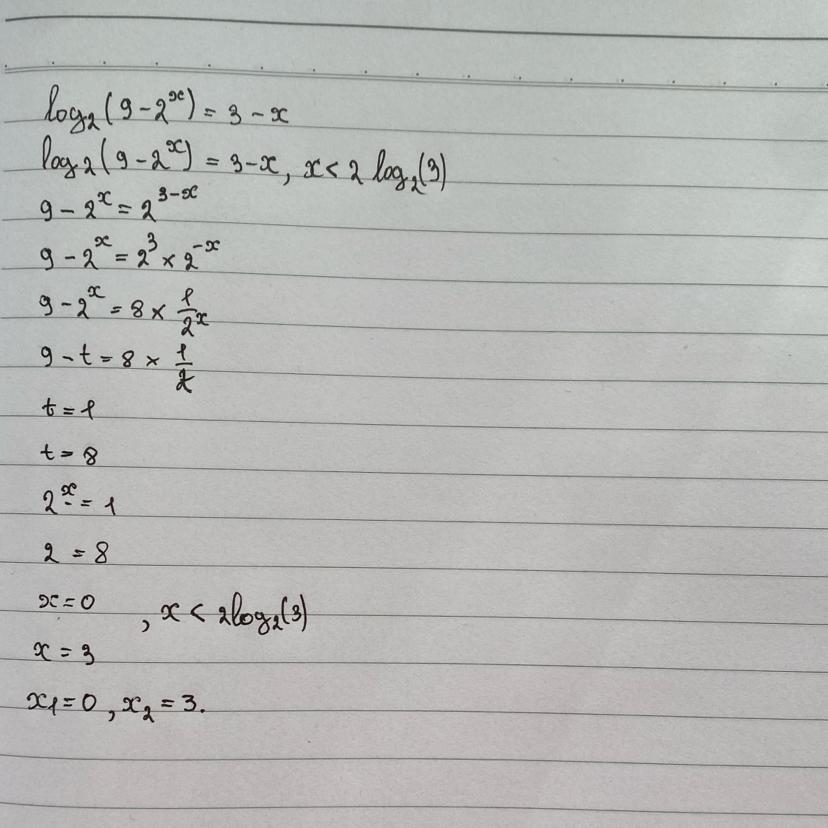 log₂(9-2ˣ) = 3-x
log₂(9-2ˣ) = 3-x, x< 2 log₂(3)
9-2ˣ = 2³⁻ˣ
9-2ˣ = 2³ × 2⁻ˣ
9-2ˣ = 8 × 1/2ˣ
9-t = 8 × 1/t
t = 1
t = 8
2ˣ = 1
2 = 8
x = 0 , x < 2log₂(3)
x = 3
x₁ = 0 , x₂ = 3.